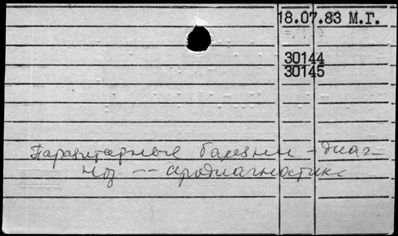 18.07.83 М.Г.
30144
30145
Паразитарные болезни - диаг-
ноз -- сродиагностика